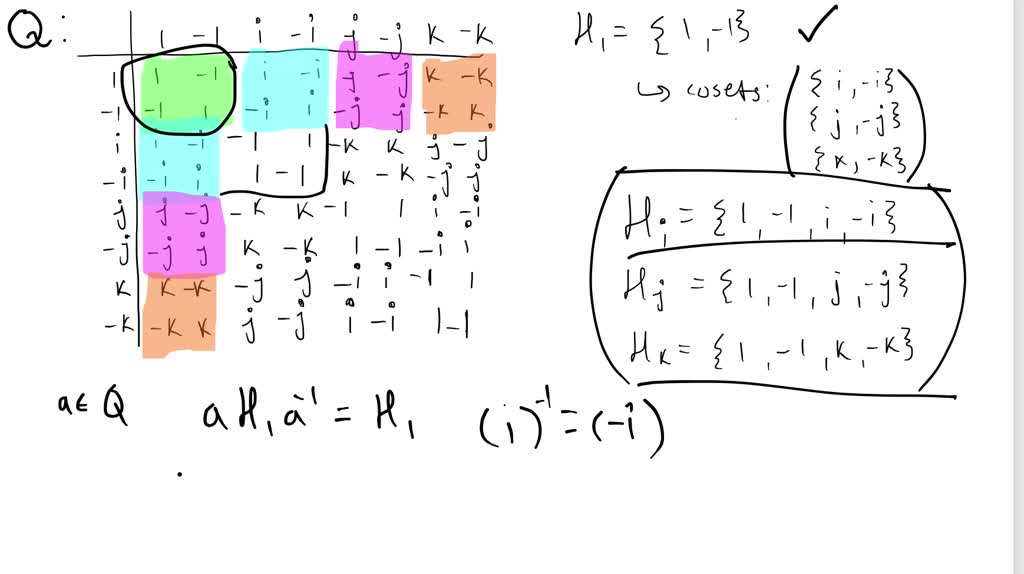 Q:
1 -1 i -i j -j k -k
1 1 -1 i -i j -j k -k
-1 -1 1 -i i -j j -k k
i i -i -1 1 -k k j -j
-i -i i 1 -1 k -k -j j
j j -j -k k -1 1 i -i
-j -j j k -k 1 -1 -i i
k k -k -j j -i i -1 1
-k -k k j -j i -i 1 -1
H₁ = {1, -1} ✓
↳ cosets: {i, -i}
{j, -j}
{k, -k}
Hᵢ = {1, -1, i, -i}
Hⱼ = {1, -1, j, -j}
Hₖ = {1, -1, k, -k}
a ∈ Q a H₁ a⁻¹ = H₁ (i)⁻¹ = (-i)